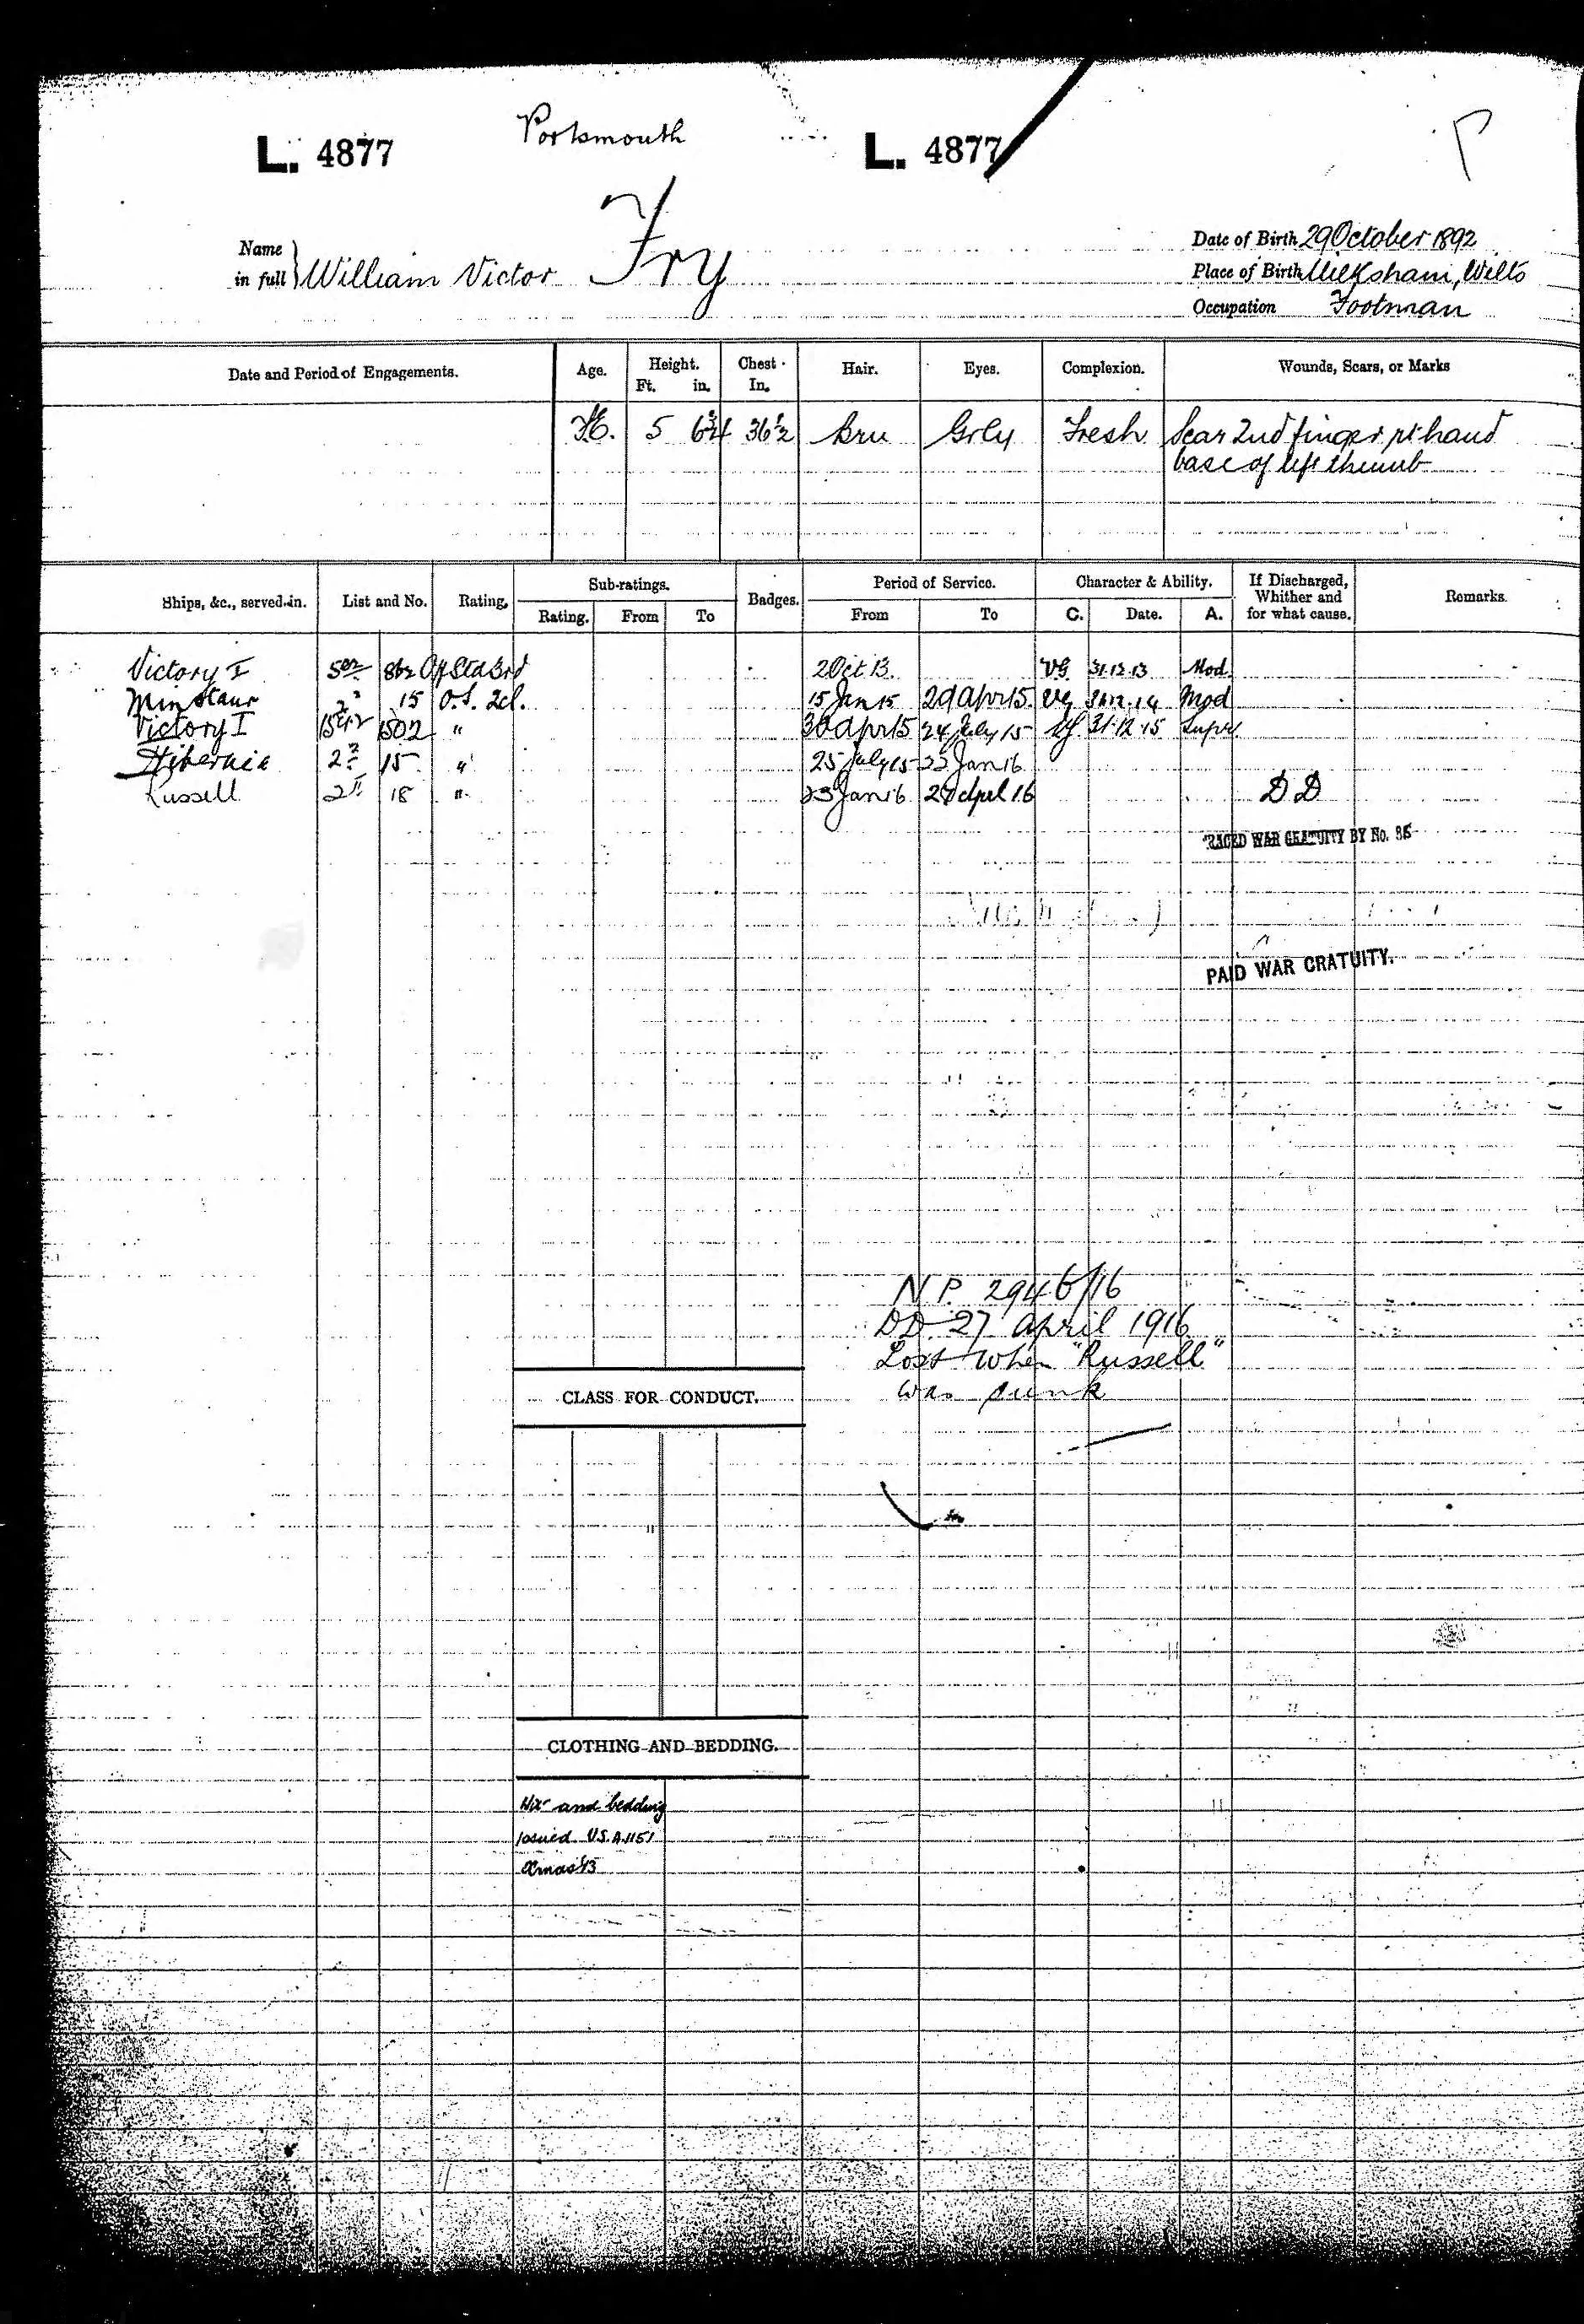 Portsmouth
L. 4877
L. 4877
P
Name in full William Victor Fry
Date of Birth 29 October 1892
Place of Birth Melksham, Wilts
Occupation Footman
Date and Period of Engagements. Age. Height. Ft. in. Chest In. Hair. Eyes. Complexion. Wounds, Scars, or Marks
5 6¾ 36½ Brn Grey Fresh Scar 2nd finger rt hand
base of left thumb
Ships, &c., served in. List and No. Rating. Sub-ratings. Rating. From To Badges. Period of Service. From To Character & Ability. C. Date. A. If Discharged, Whither and for what cause. Remarks.
Victory I 862 2 Oct 13 VG 31.12.13 Mod
Minotaur 15 O.S. 2cl. 15 Jan 15 29 Apr 15 VG Mod
Victory I 1502 " 30 Apr 15 24 July 15 31.12.15 Supr
Hibernia 15 " 25 July 15 22 Jan 16
Russell 18 " 23 Jan 16 27 April 16 DD
TRACED WAR GRATUITY BY No.
PAID WAR GRATUITY.
N.P. 2946/16
DD. 27 April 1916
Lost when "Russell"
was sunk
CLASS FOR CONDUCT.
CLOTHING AND BEDDING.
and bedding
issued
Xmas 13